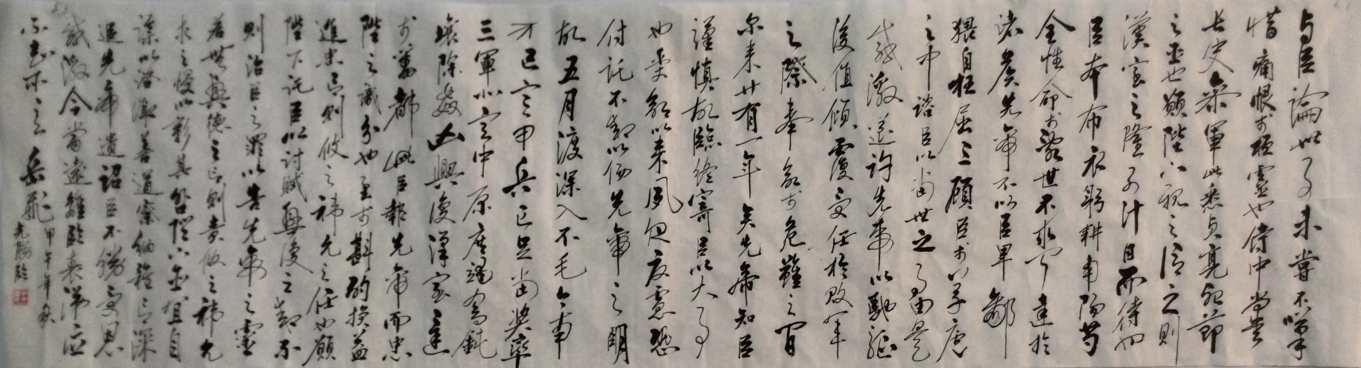 与臣論此事未嘗不嘆
惜痛恨於桓靈也侍中尚書
長史參軍此悉貞亮死節
之臣也願陛下親之信之則
漢室之隆可計日而待也
臣本布衣躬耕南陽苟
全性命於亂世不求聞達於
諸侯先帝不以臣卑鄙
猥自枉屈三顧臣於草廬
之中諮臣以當世之事由是
感激遂許先帝以馳驅
後值傾覆受任於敗軍
之際奉命於危難之間
尔来廿有一年矣先帝知臣
謹慎故臨終寄臣以大事
也受命以来夙夜憂恐
付託不効以傷先帝之明
故五月渡深入不毛今南
方已定甲兵已足當奨率
三軍北定中原庶竭駑鈍
攘除姦凶興復漢室還
於舊都此臣報先帝而忠
陛之職分也至於斟酌損益
進忠言則攸之禕允之任也願
陛下託臣以討賊興復之効不
則治臣之罪以告先帝之靈
若無興德之言則責攸之禕允
求之慢以彰其咎陛下亦宜自
謀以諮諏善道察納雅言深
追先帝遺詔臣不勝受恩
感激今當遠離臨表涕泣
不知所云 岳飛 甲午年秋
光勝臨